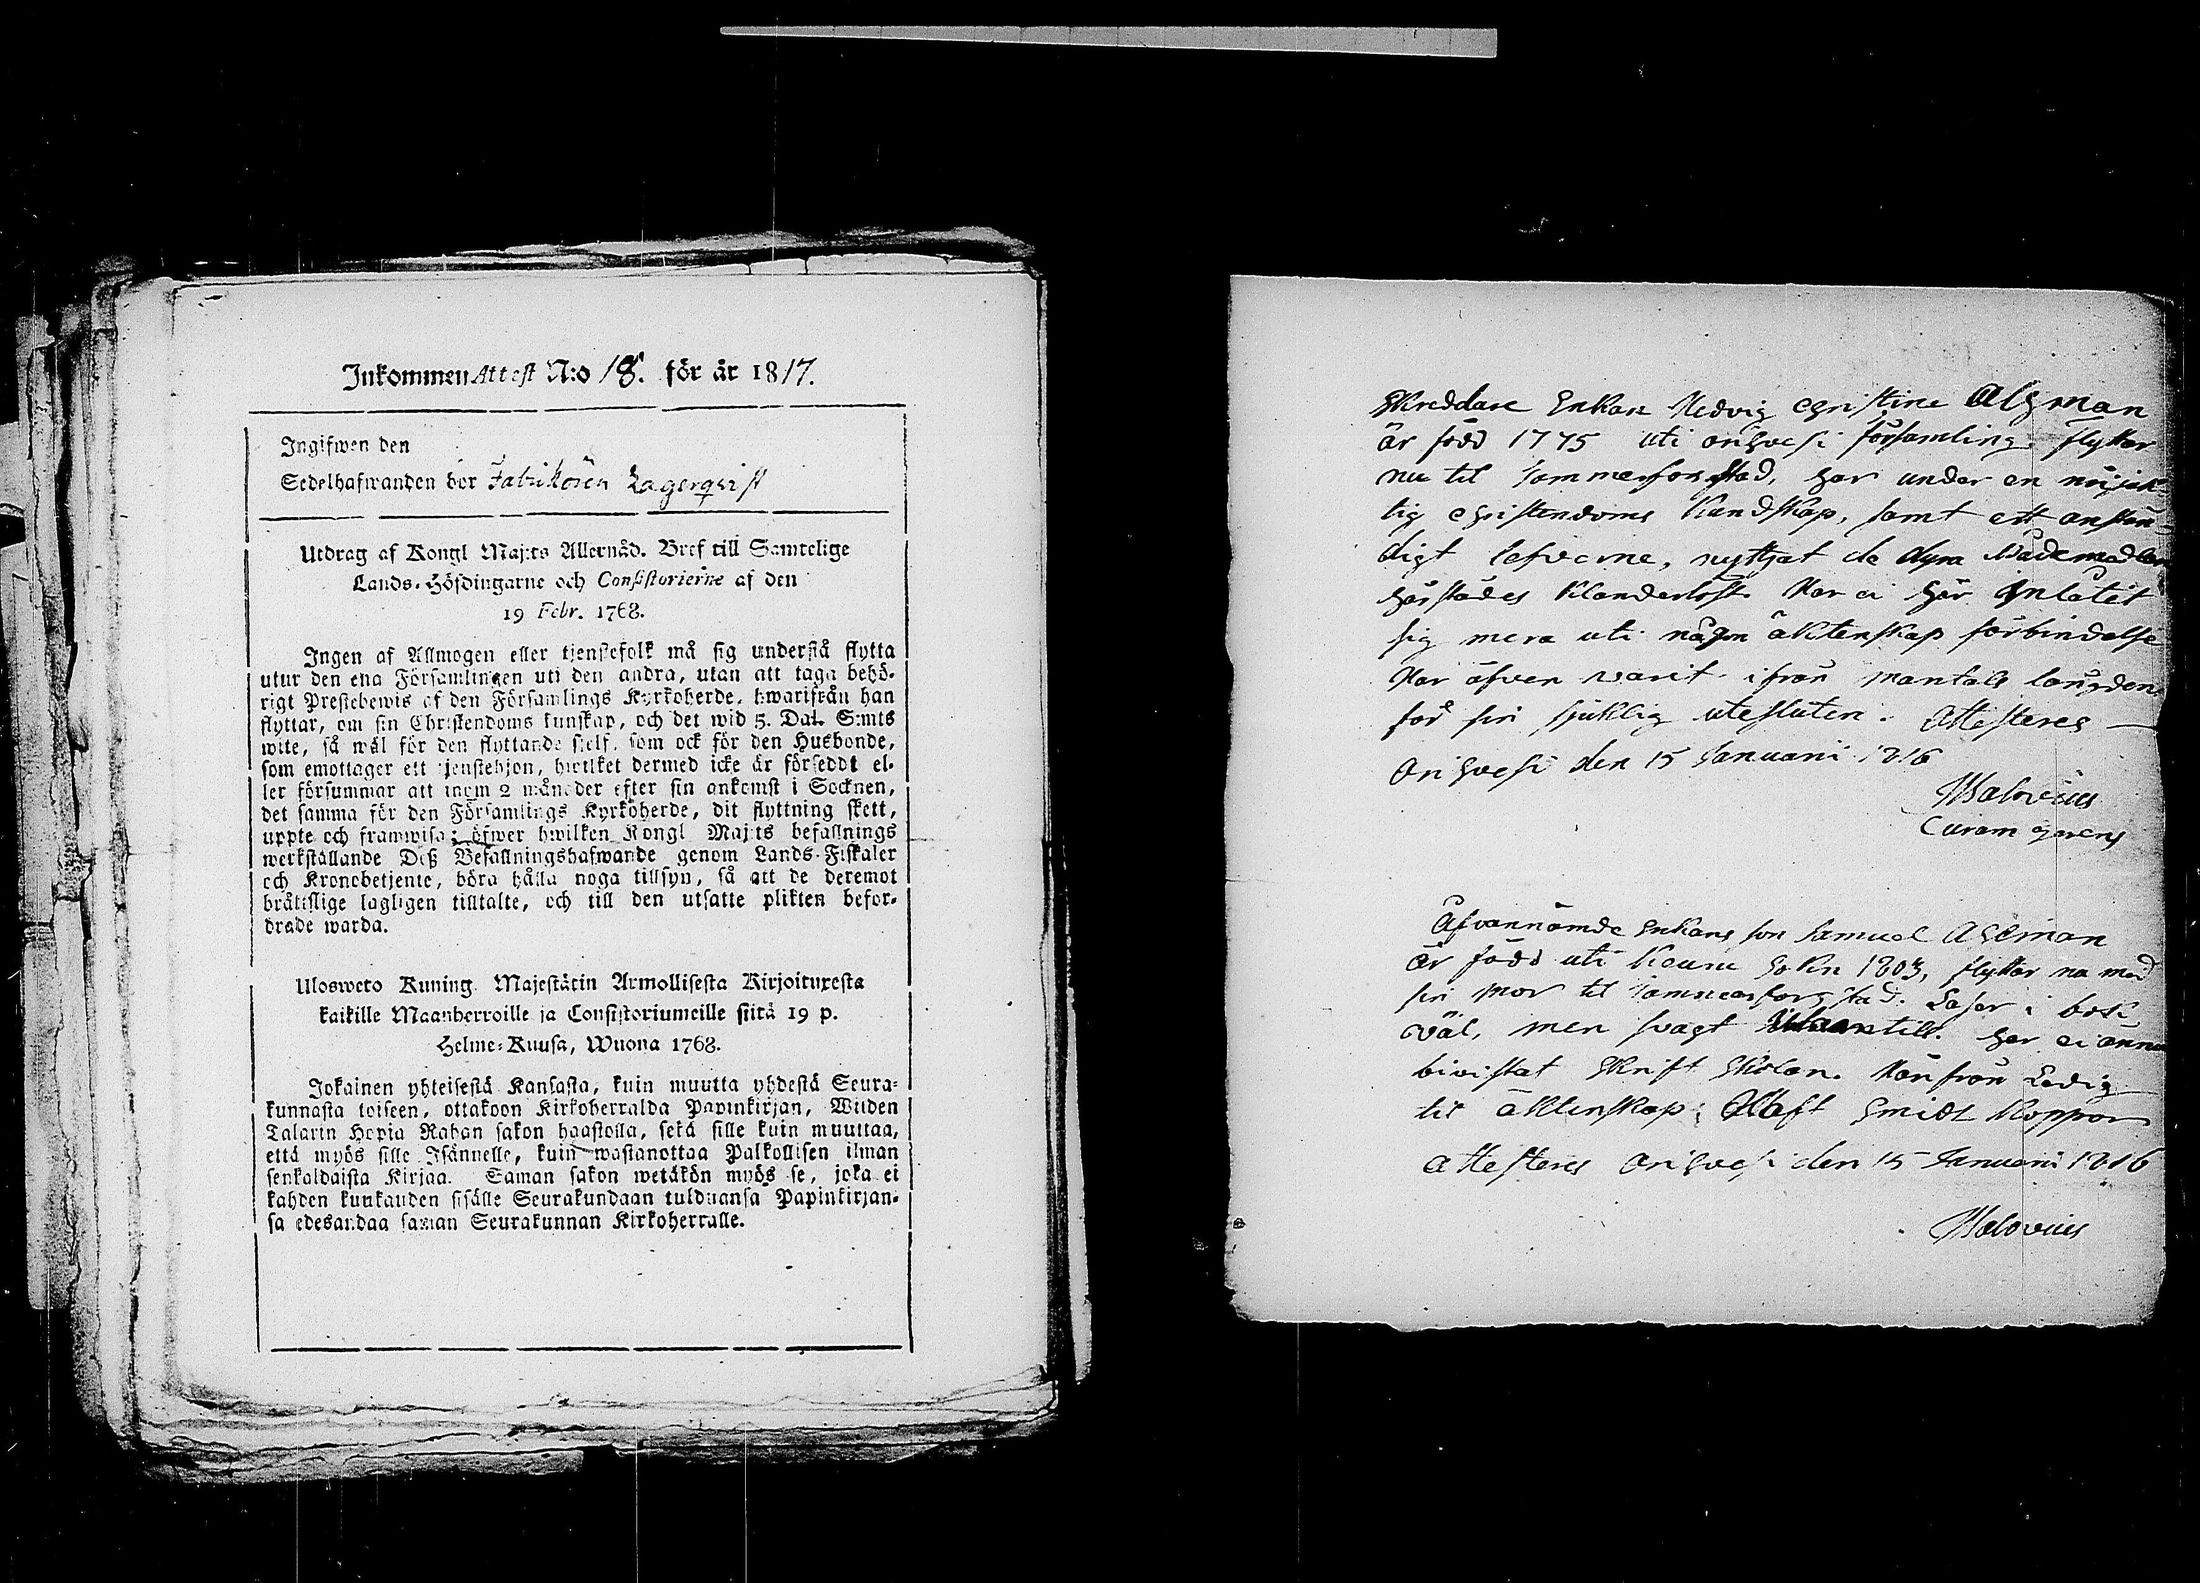 Inkommen Attest N:o 18. för år 1817.
Ingifwen den
Sedelhafwanden bor Fabrikören Lagerqvist
Utdrag af Kongl Maj:ts Allernåd. Bref till Samtelige
Lands-Höfdingarne och Consistorierne af den
19 Febr. 1768.
Ingen af Allmogen eller tjenstefolk må sig understå flytta
utur den ena Församlingen uti den andra, utan att taga behö-
rigt Prestebewis af den Församlings Kyrkoherde, hwarifrån han
flyttar, om sin Christendoms kunskap, och det wid 5. Dal. S:mts
wite, så wäl för den flyttande sielf, som ock för den Husbonde,
som emottager ett tjenstehjon, hwilket dermed icke är försedt el-
ler försummar att inom 2 månader efter sin ankomst i Socknen,
det samma för den Församlings Kyrkoherde, dit flyttning skett,
uppte och framwisa; öfwer hwilken Kongl Maj:ts befallnings
werkställande Deß Befallningshafwande genom Lands-Fiskaler
och Kronobetjente, böra hålla noga tillsyn, så att de deremot
bråttslige lagligen tilltalte, och till den utsatte plikten befor-
drade warda.
Ulosweto Kuning. Majestätin Armollisesta Kirjoituxesta
kaikille Maanherroille ja Consistoriumeille siitä 19 p.
Helme-Kuusa, Wuona 1768.
Jokainen yhteisestä Kansasta, kuin muutta yhdestä Seura-
kunnasta toiseen, ottakoon Kirkoherralda Papinkirjan, Wiiden
Talarin Hopia Rahan sakon haastolla, sekä sille kuin muuttaa,
että myös sille Isännelle, kuin wastanottaa Palkollisen ilman
senkaldaista Kirjaa. Saman sakon wetäkön myös se, joka ei
kahden kuukauden sisälle Seurakundaan tulduansa Papinkirjan-
sa edesandaa saman Seurakunnan Kirkoherralle.
Skreddare Enkan Hedvig Christine Algman
är född 1775 uti Orihvesi församling flyttar
nu til Tammerfors stad, har under en nöjak
tig Christendoms Kundskap, samt ett anstän
digt lefverne, nyttjat de dyra Nådemedlen
härstädes klanderlöst. Har ei här inlåtet
sig mera uti någon äktenskap förbindelse
Har äfven varit ifrån mantals längden
för sin sjuklig utesluten. Attesteres
Orihvesi den 15 Januarii 1816
Malovius
Curam gerens
Åfvannämde Enkans son Samuel Algman
är född uti Keuru Sokn 1803, flyttar nu med
sin mor til Tammerfors stad. Läser i bok
väl, men svagt utantill. Har ei ännu
bivistat Skrift Skolan. Härifrån Ledig
til äktenskap. Haft Smidt Koppor
Attesteres Orihvesi den 15 Januarii 1816
Malovius